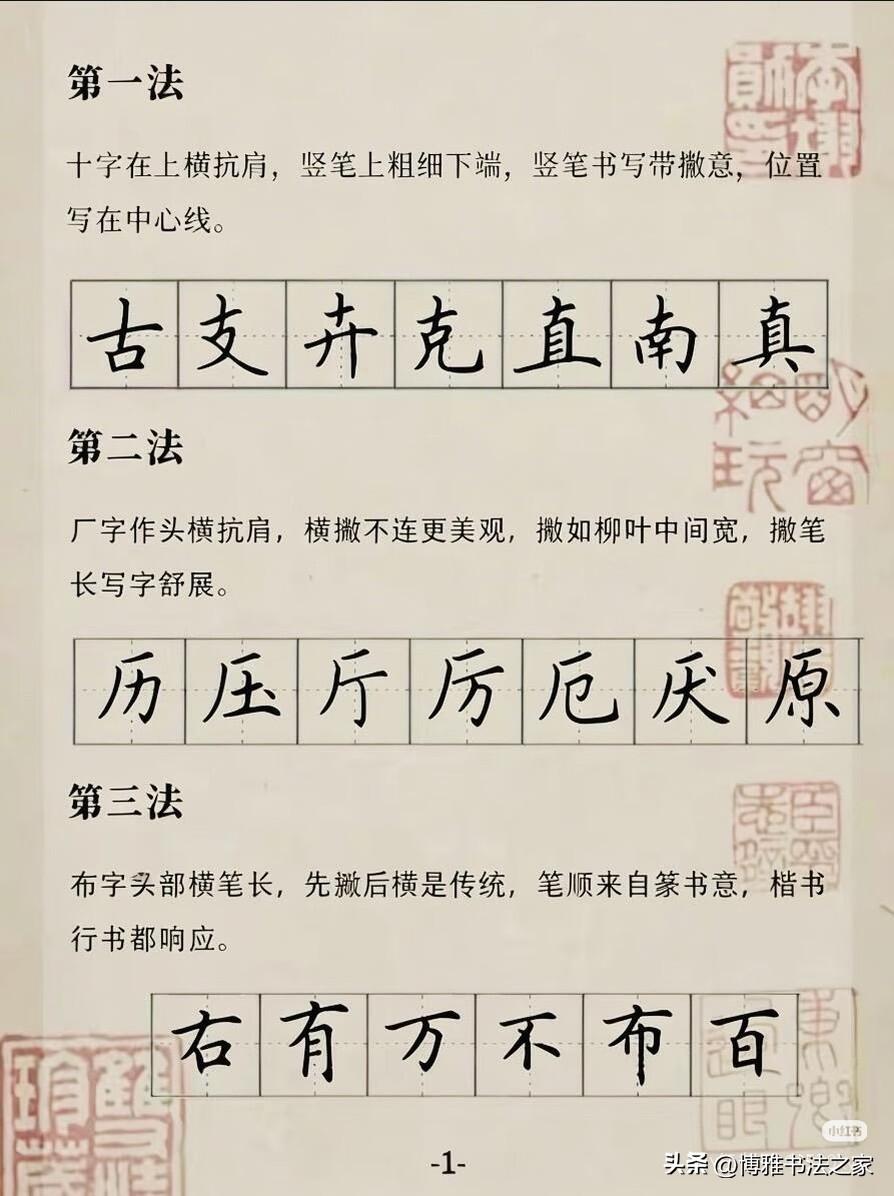 第一法
十字在上横抗肩，竖笔上粗细下端，竖笔书写带撇意，位置
写在中心线。
古支卉克直南真
第二法
厂字作头横抗肩，横撇不连更美观，撇如柳叶中间宽，撇笔
长写字舒展。
历压厅厉厄厌原
第三法
布字头部横笔长，先撇后横是传统，笔顺来自篆书意，楷书
行书都响应。
右有万不布百
小红书
-1-
头条 @博雅书法之家